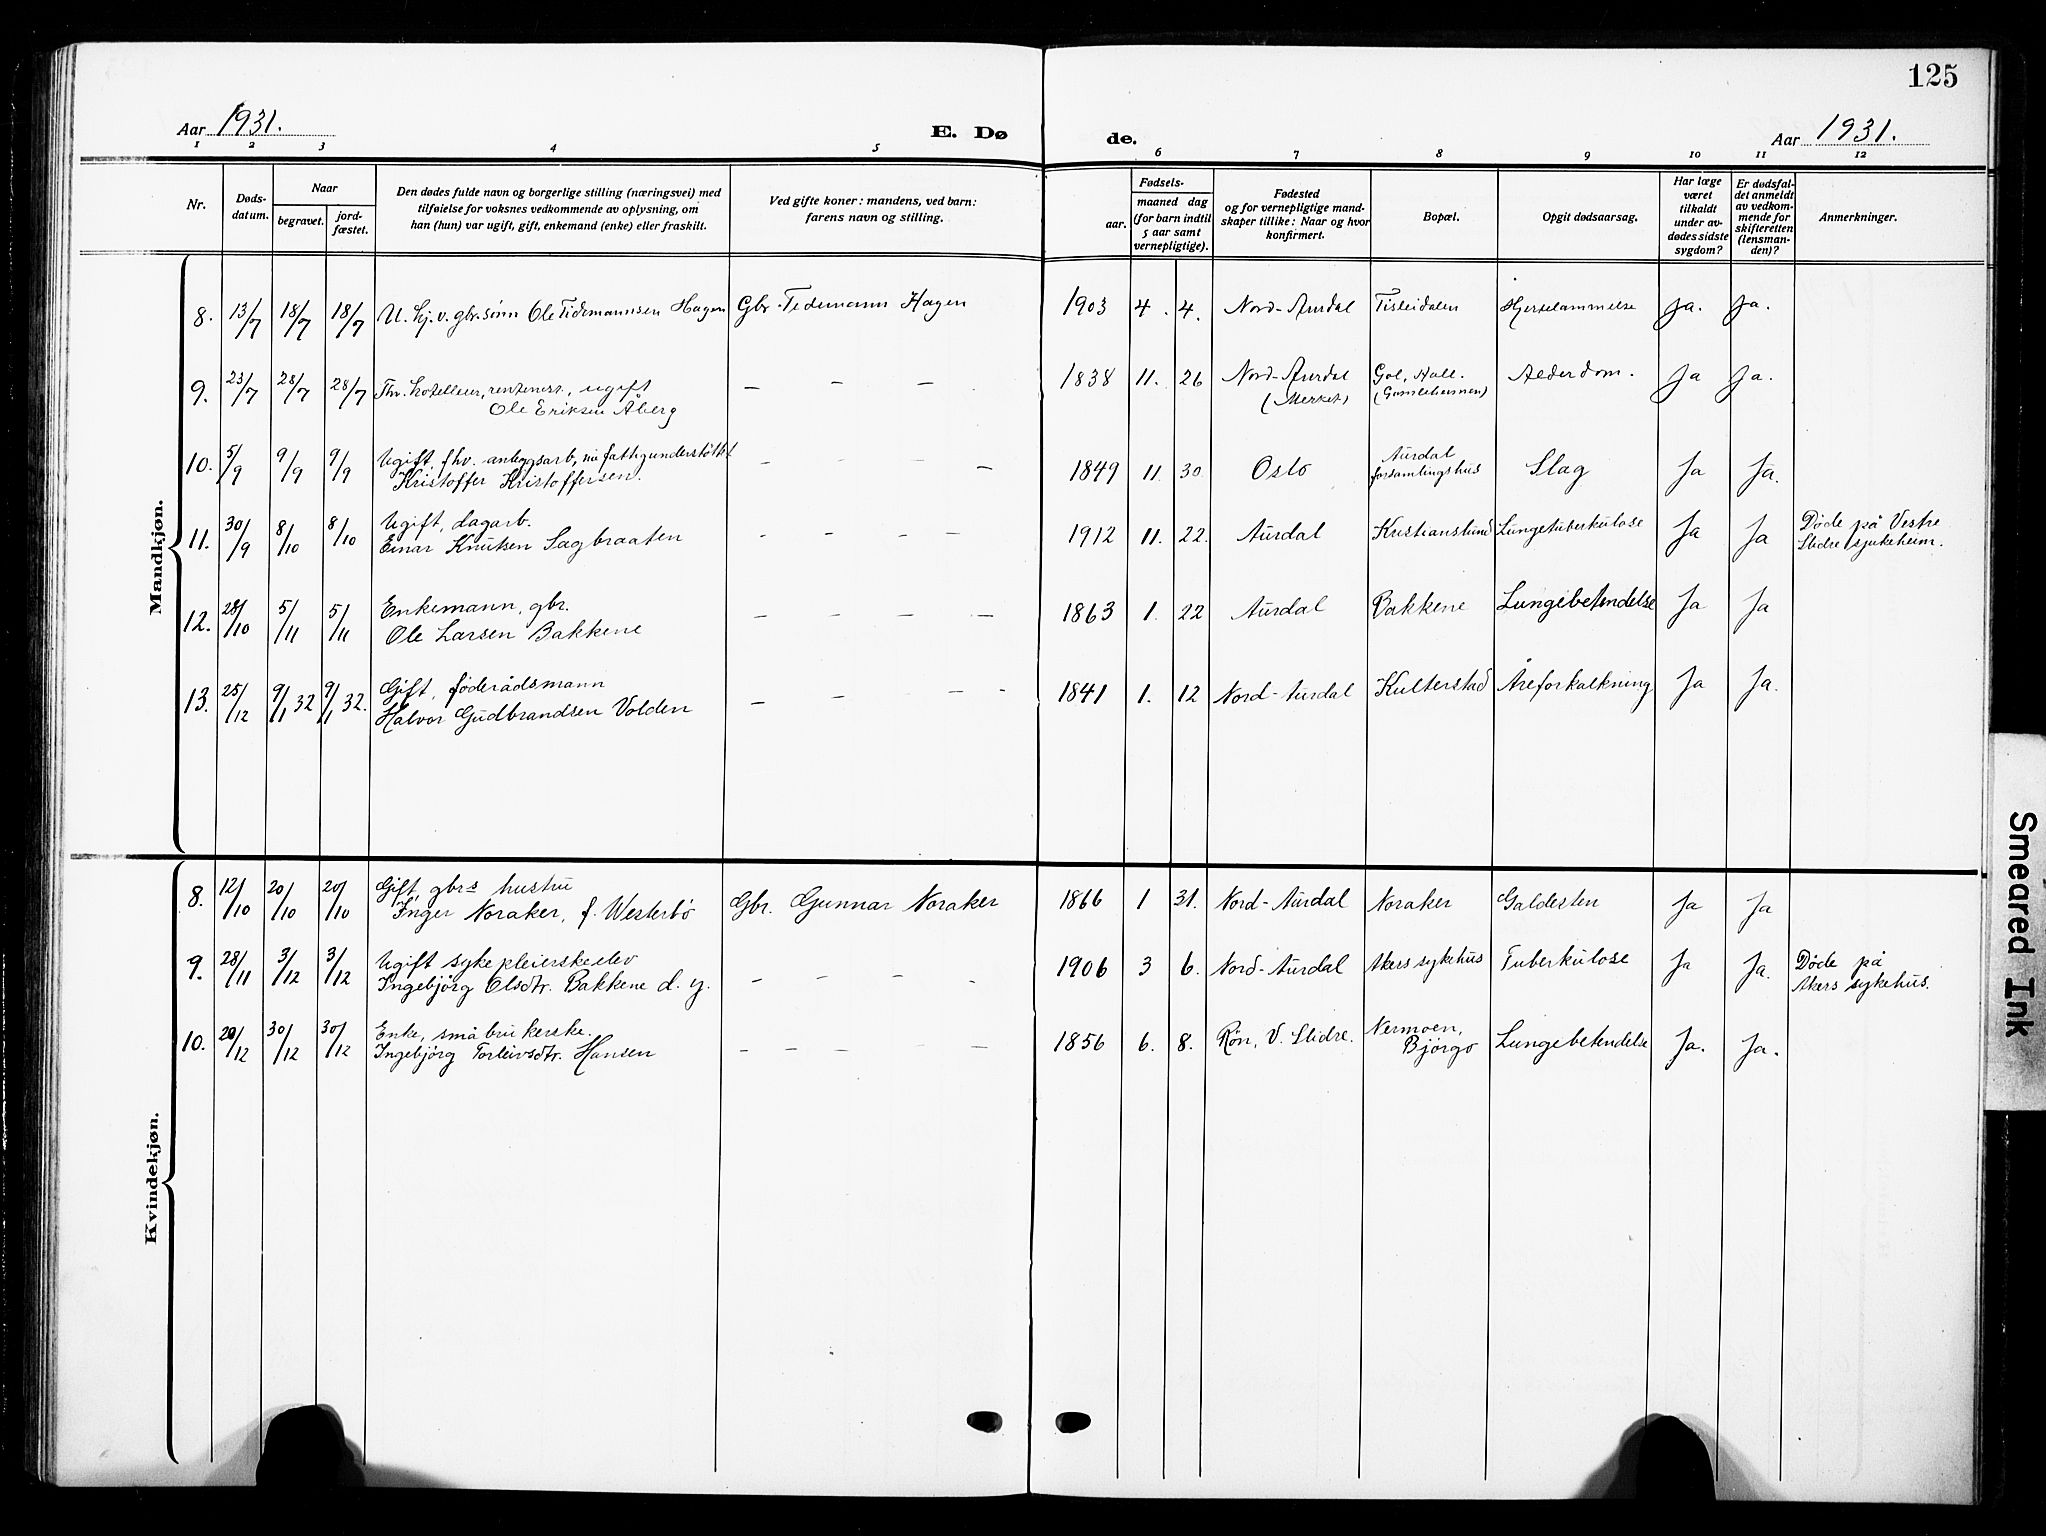 125
Aar 1931. E. Dø de. Aar 1931.
1 2 3 4 5 6 7 8 9 10 11 12
Nr.
Døds-
datum.
Naar
begravet.
jord-
fæstet.
Den dødes fulde navn og borgerlige stilling (næringsvei) med
tilføielse for voksnes vedkommende av oplysning, om
han (hun) var ugift, gift, enkemand (enke) eller fraskilt.
Ved gifte koner: mandens, ved barn:
farens navn og stilling.
Fødsels-
aar.
maaned dag
(for barn indtil
5 aar samt
vernepligtige).
Fødested
og for vernepligtige mand-
skaper tillike: Naar og hvor
konfirmert.
Bopæl.
Opgit dødsaarsag.
Har læge
været
tilkaldt
under av-
dødes sidste
sygdom?
Er dødsfal-
det anmeldt
av vedkom-
mende for
skifteretten
(lensman-
den)?
Anmerkninger.
Mandkjøn.
8. 13/7 18/7 18/7 U. hj. v. gbr. sønn Ole Tidemannsen Hagen Gbr. Tedemann Hagen 1903 4. 4. Nord-Aurdal Tisleidalen Hjertelammelse Ja. Ja.
9. 23/7 28/7 28/7 Fhv. hotelleier, rentenist, ugift — — — 1838 11. 26 Nord-Aurdal Gol, Hall. Alderdom. Ja Ja.
Ole Eriksen Åberg (Merket) (Gamleheimen)
10. 5/9 9/9 9/9 Ugift, fhv. anleggsarb, nu fattigunderstöttet — — — 1849 11 30. Oslo Aurdal Slag Ja Ja.
Kristoffer Kristoffersen. forsamlingshus
11. 30/9 8/10 8/10 Ugift, dagarb. — — — — 1912 11. 22. Aurdal Kristianslund Lungetuberkulose Ja Ja Døde på Vestre
Einar Knutsen Sagbraaten Slidre sjukeheim.
12. 28/10 5/11 5/11 Enkemann, gbr. — — — — 1863 1. 22 Aurdal Bakkene Lungebetendelse Ja Ja
Ole Larsen Bakkene
13. 25/12 9/1 32 9/1 32. Gift, föderådsmann — — — — 1841 1. 12 Nord-Aurdal Kulterstad Åreforkalkning Ja Ja.
Halvor Gudbrandsen Volden
Kvindekjøn.
8. 12/10 20/10 20/10 Gift, gbrs hustru Gbr. Gunnar Noraker 1866 1 31. Nord-Aurdal Noraker Galdesten Ja Ja
Inger Noraker, f. Westerbö
9. 28/11 3/12 3/12 Ugift sykepleierskeelev — — — - 1906 3 6. Nord-Aurdal Akers sykehus Tuberkulose Ja Ja. Døde på
Ingebjörg Olsdtr. Bakkene d. y. Akers sykehus.
10. 20/12 30/12 30/12 Enke, småbrukerske. — — — — — 1856 6. 8. Røn, V. Slidre. Nermoen, Lungebetendelse Ja. Ja.
Ingebjörg Torleivsdtr. Hansen Bjørgo
Smeared Ink